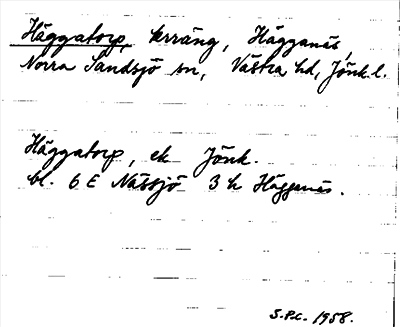 Häggatorp, terräng, Hägganäs,
Norra Sandsjö sn, Västra hd, Jönk. l.
Häggatorp, ek Jönk.
bl. 6 E Nässjö 3 h Hägganäs.
S.P.C. 1958.